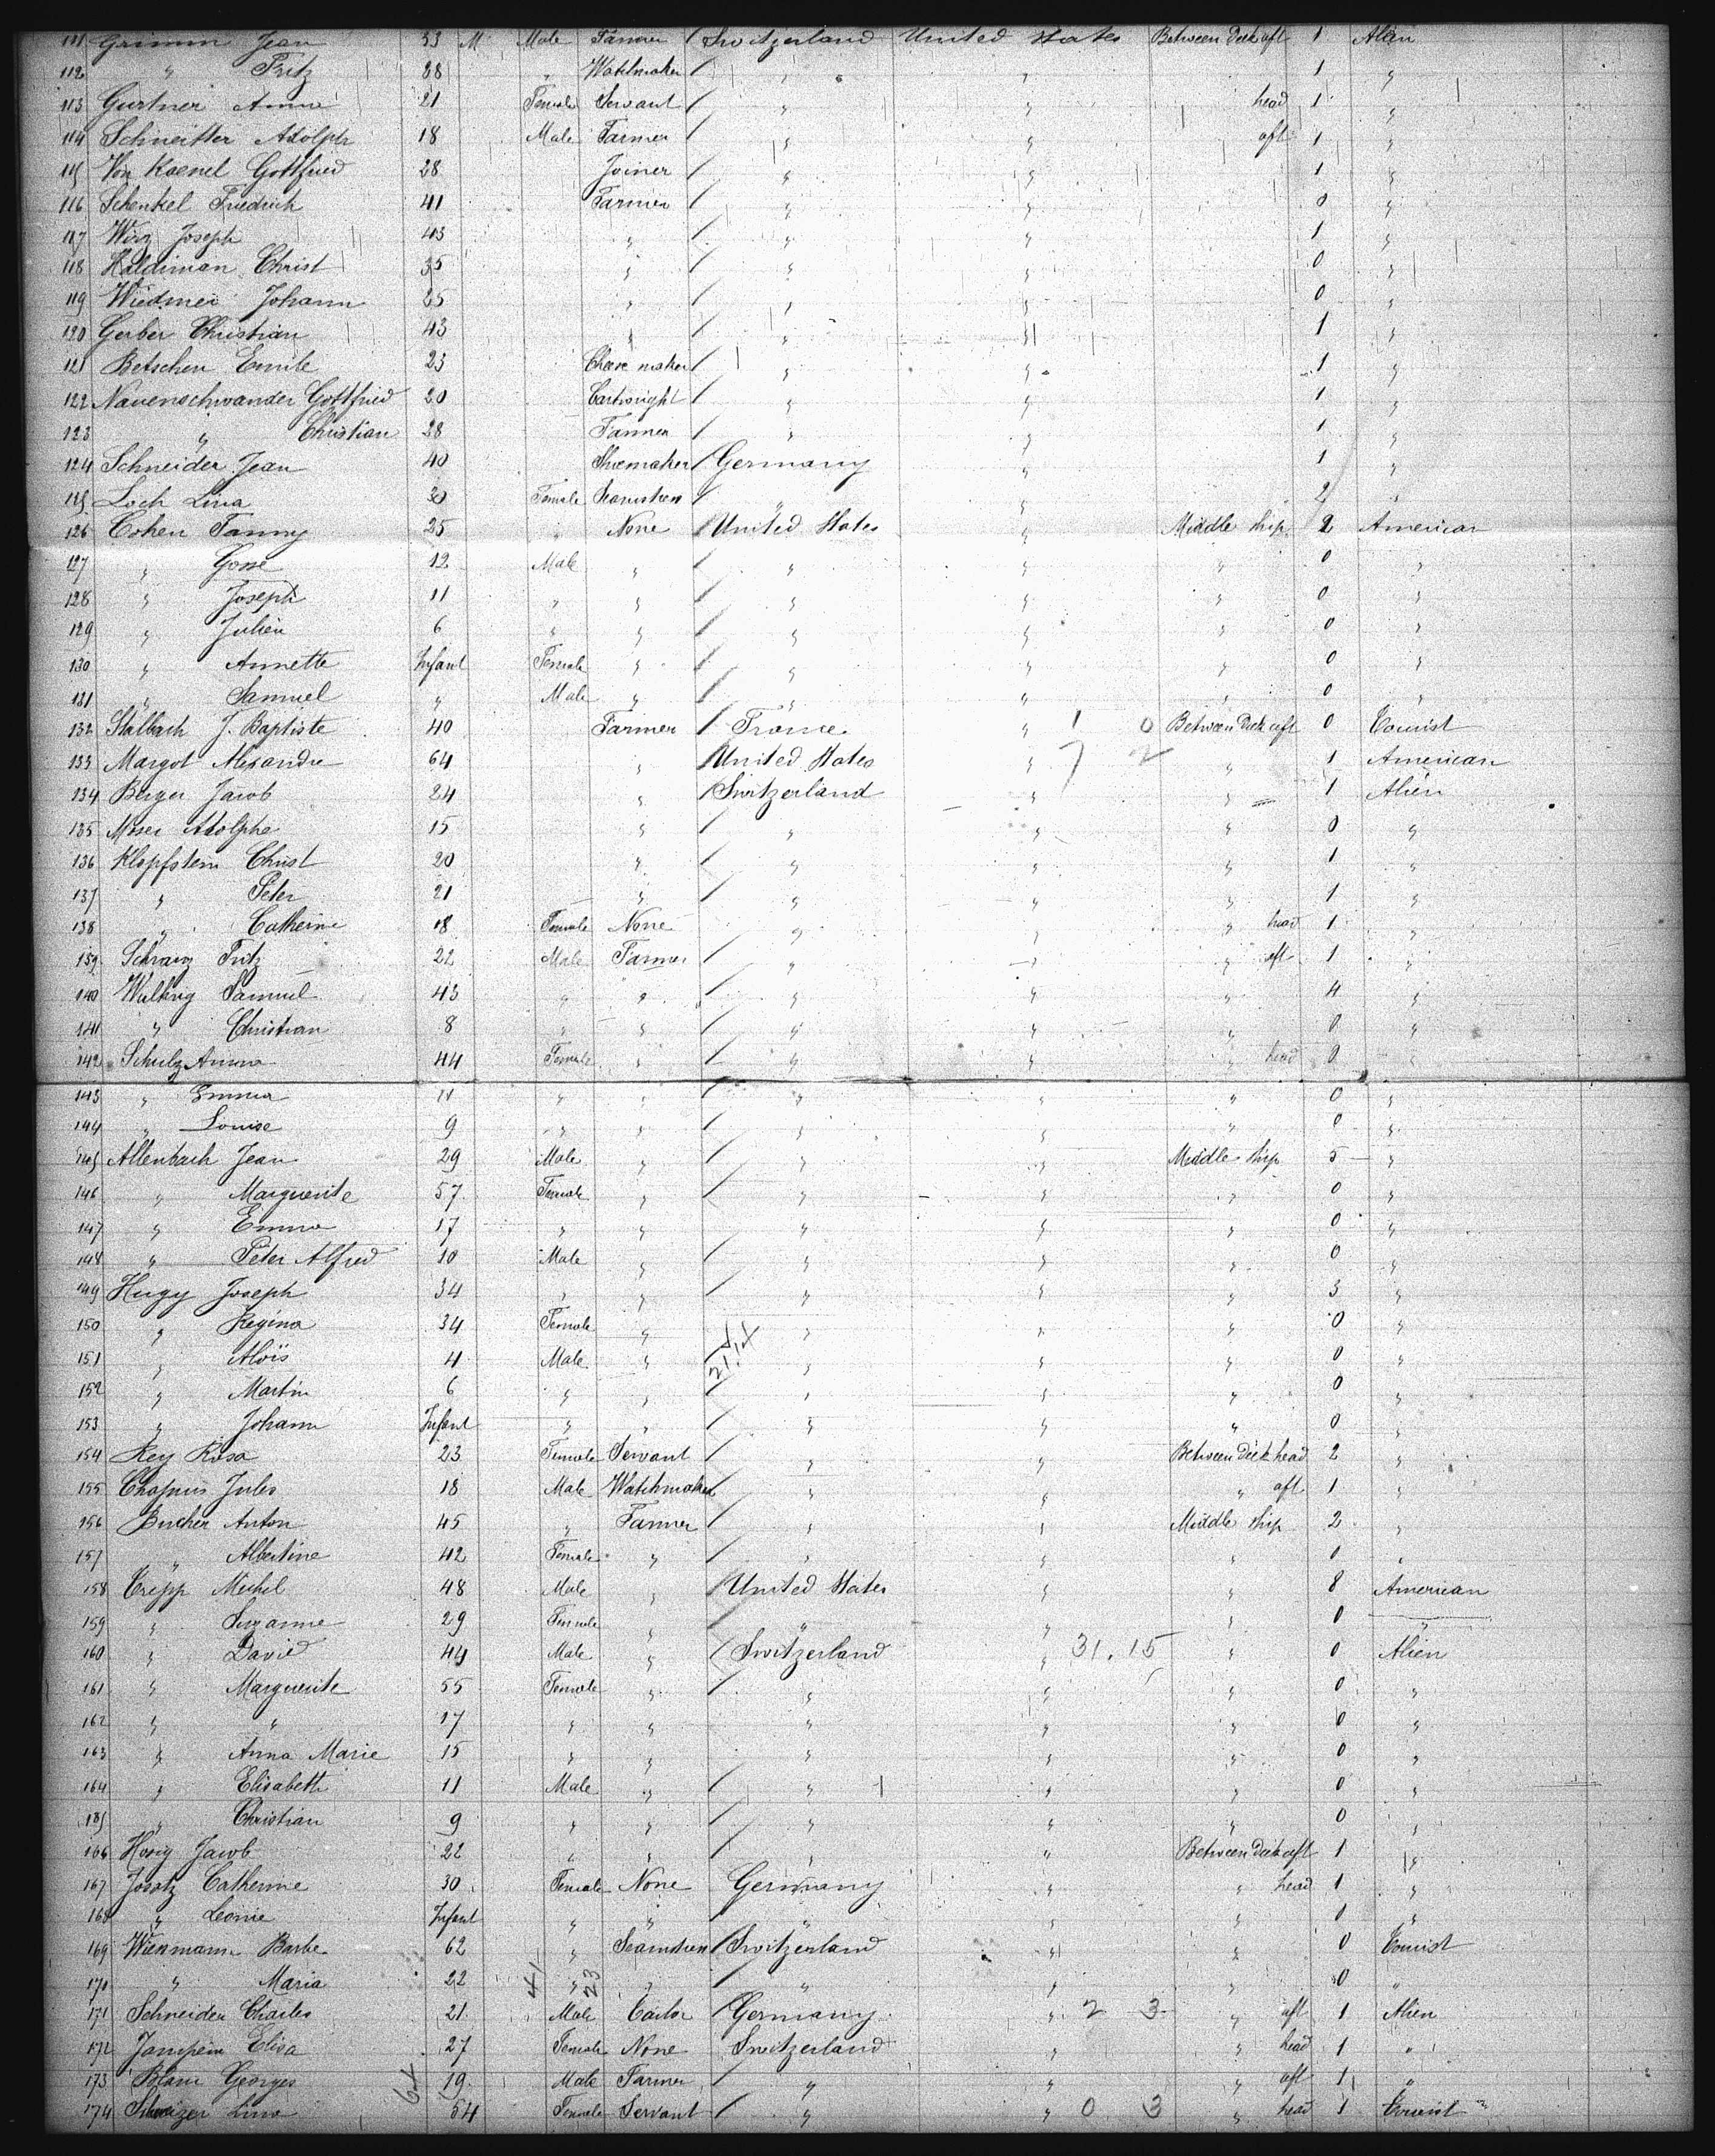 111 Grimm Jean 33 M Male Farmer / Switzerland United States Between Deck aft 1 Alien
112 " Fritz 28 " Watchmaker / " " " 1 "
113 Gurtner Anna 21 Female Servant / " " head 1 "
114 Schneitter Adolph 18 Male Farmer / " " aft 1 "
115 Von Kaenel Gottfried 28 Joiner / " " 1 "
116 Schenkel Friedrich 41 Farmer / " " 0 "
117 Wirz Joseph 43 " / " " 1 "
118 Haldiman Christ 35 " / " " 0 "
119 Wiedmer Johann 25 " / " " 0 "
120 Gerber Christian 43 " / " " 1 "
121 Betschen Emile 23 Cheese maker / " " 1 "
122 Nauenschwander Gottfried 20 Cartwright / " " 1 "
123 " Christian 28 Farmer / " " 1 "
124 Schneider Jean 40 Shoemaker / Germany " 1 "
125 Loch Lina 30 Female / " " 2 "
126 Cohen Fanny 25 " None / United States " Middle ship 2 American
127 " 12 Male " / " " " 0 "
128 " Joseph 11 " " / " " " 0 "
129 " Julien 6 " " / " " " 0 "
130 " Annette Infant Female " / " " " 0 "
131 " Samuel " Male " / " " " 0 "
132 Stalbach J. Baptiste 40 Farmer / France " 1 0 Between Deck aft 0 Tourist
133 Margot Alexandre 64 " / United States " 7 2 " 1 American
134 Berger Jacob 24 " / Switzerland " " 1 Alien
135 Moser Adolphe 15 " / " " " 0 "
136 Klopfstein Christ 20 " / " " " 1 "
137 " Peter 21 " / " " " 1 "
138 " Catherine 18 Female None " " " head 1 "
139 Schranz Fritz 22 Male Farmer / " " " aft 1 "
140 Samuel 43 " " / " " " 4 "
141 " Christian 8 " " / " " " 0 "
142 Schulz Anna 44 Female " / " " " head 0 "
143 " Emma 11 " " / " " " 0 "
144 " Louise 9 " " / " " " 0 "
145 Allenbach Jean 29 Male " / " " Middle ship 5 "
146 " Marguerite 57 Female " / " " " 0 "
147 " Emma 17 " " " " " 0 "
148 " Peter Alfred 10 Male " / " " " 0 "
149 Hugy Joseph 34 " " / " " " 3 "
150 " Regina 34 Female " " " " 0 "
151 " Aloïs 4 Male " " " " 0 "
152 " Martin 6 " " / " " " 0 "
153 " Johann Infant " " / " " " 0 "
154 Rey Rosa 23 Female Servant / " " Between Deck head 2 "
155 Chapuis Jules 18 Male Watchmaker / " " " aft 1 "
156 Bucher Anton 45 " Farmer / " " Middle ship 2 "
157 " Albertine 42 Female " / " " " 0 "
158 Trepp Michel 48 Male " / United States " " 8 American
159 " Suzanne 29 Female " / " " " 0 "
160 " David 44 Male " / Switzerland " 31. 15 " 0 Alien
161 " Marguerite 55 Female " / " " " 0 "
162 " " 17 " " " " " 0 "
163 " Anna Marie 15 " " " " " 0 "
164 " Elisabeth 11 Male " / " " " 0 "
165 " Christian 9 " " / " " " 0 "
166 Jacob 22 " " / " " Between Deck aft 1 "
167 Catherine 30 Female None Germany " " head 1 "
168 " Leonie Infant " " / " " " 0 "
169 Barbe 62 " / Switzerland " " 0 Tourist
170 " Maria 22 " " / " " " 0 "
171 Schneider Charles 21 Male / Germany " 2 3 " aft 1 Alien
172 Elisa 27 Female None Switzerland " " head 1 "
173 Georges 19 Male Farmer / " " " aft 1 "
174 Lina 54 Female Servant / " " 0 3 " head 1 Tourist